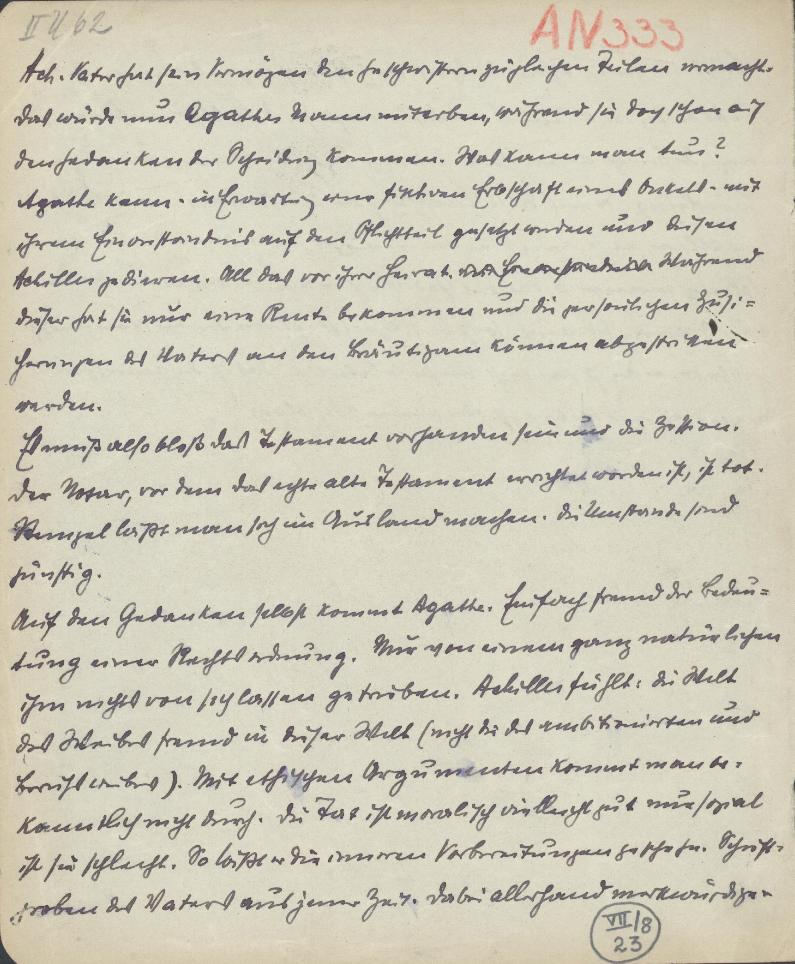 II U 62
AN 333
Ach. Vater hat sein Vermögen den Geschwistern zu gleichen Teilen vermacht.
Das würde nun Agathes Mann miterben, während sie doch schon auf
den Gedanken der Scheidung kommen. Was kann man tun?
Agathe kann - in Erwartung einer fiktiven Erbschaft eines Onkels - mit
ihrem Einverständnis auf den Pflichtteil gesetzt werden und diesen
Achilles zedieren. All das vor ihrer Heirat. Während
dieser hat sie nur eine Rente bekommen und die persönlichen Zusi=
cherungen des Vaters an den Bräutigam können abgestritten
werden.
Es muß also bloß das Testament vorhanden sein und die Zession.
Der Notar, vor dem das echte alte Testament errichtet worden ist, ist tot.
Stempel läßt man sich im Ausland machen. Die Umstände sind
günstig.
Auf den Gedanken selbst kommt Agathe. Einfach fremd der Bedeu=
tung einer Rechtsordnung. Nur von einem ganz natürlichen
ihm nichts von sich lassen getrieben. Achilles fühlt: die Welt
des Weibes fremd in dieser Welt (nicht die des ambitionierten und
Berufsweibes). Mit ethischen Argumenten kommt man be=
kanntlich nicht durch. Die Tat ist moralisch vielleicht gut nur sozial
ist sie schlecht. So läßt er die inneren Vorbereitungen geschehn. Schrift=
proben des Vaters aus jener Zeit. Dabei allerhand merkwürdige
VII/8
23